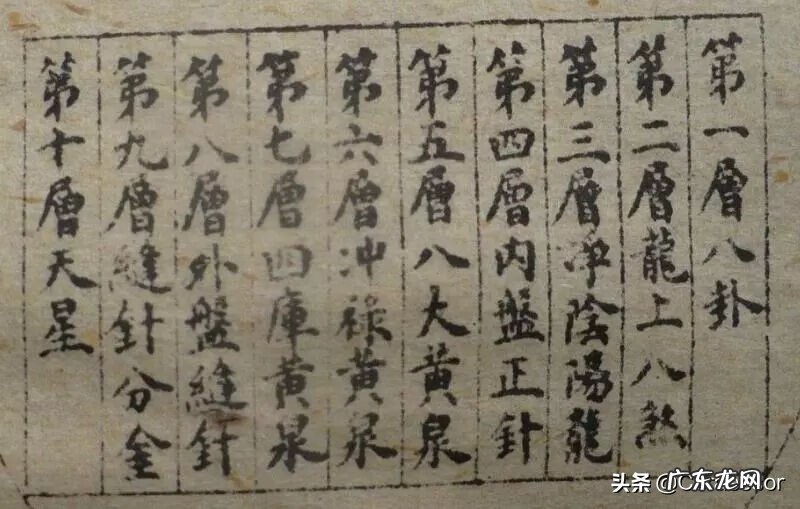 第一層八卦
第二層龍上八煞
第三層淨陰陽龍
第四層內盤正針
第五層八大黃泉
第六層冲祿黃泉
第七層四庫黃泉
第八層外盤縫針
第九層縫針分金
第十層天星
头条 @广东龙网